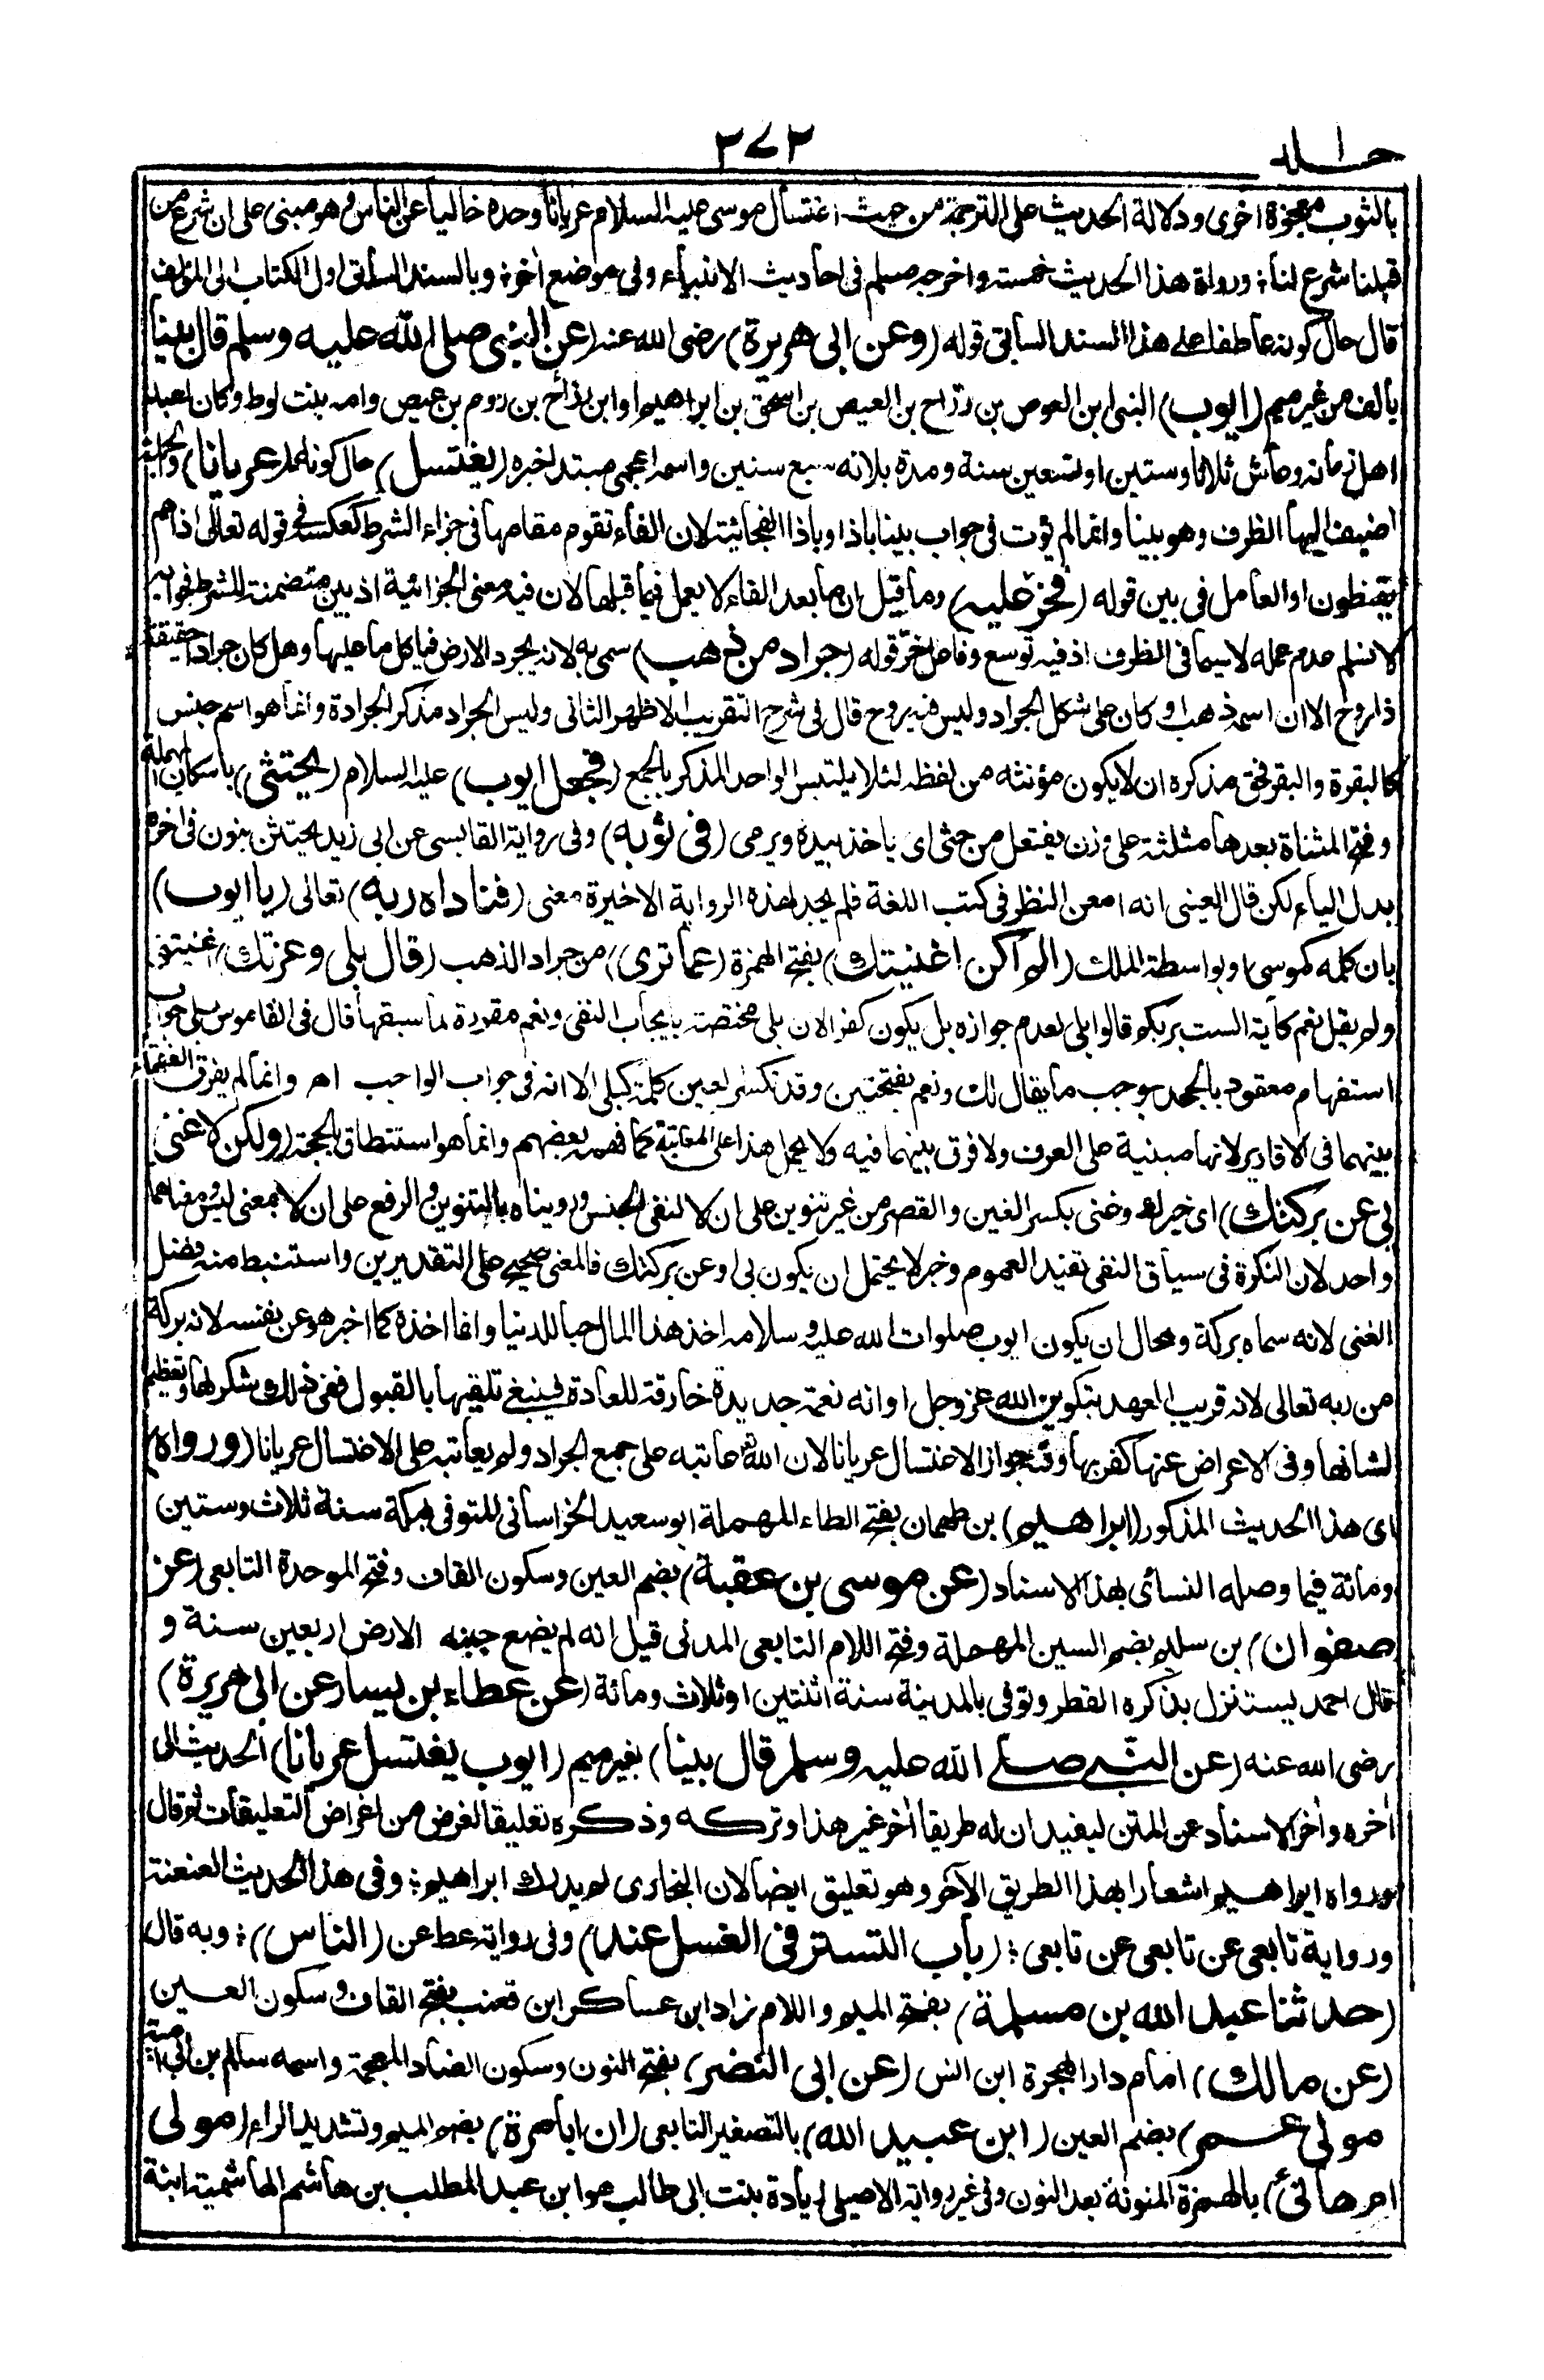 جلد ١
٣٧٢
بالثوب معجزة اخرى ودلالة الحديث على الترجمة من حيث اغتسال موسى عليه السلام عريانا وحده خاليا عن الناس وهو مبنى على ان شرع من
قبلنا شرع لنا؛ ورواة هذا الحديث خمسة واخرجه مسلم فى احاديث الانبياء وفى موضع اٰخر؛ وبالسند السابق اول الكتاب الى المؤلف
قال حال كونه عاطفا على هذا السند السابق قوله (وعن ابى هريرة) رضى الله عنه (عن النبى صلى الله عليه وسلم قال بينا)
بالف من غير ميم (ايوب) النبى ابن العوص بن رزاح بن العيص بن اسحٰق بن ابراهيم او ابن رزاح بن روم بن عيص وامه بنت لوط وكان اعبد
اهل زمانه وعاش ثلاثا وستين او تسعين سنة ومدة بلائه سبع سنين واسمه اعجمى مبتدأ خبره (يغتسل) حال كونه (عريانا) والجملة
اضيف اليها الظرف وهو بينا وانما لم يؤت فى جواب بينا باذ او باذا الفجائية لان الفاء تقوم مقامها فى جزاء الشرط كعكسه فى قوله تعالى اذا هم
يقنطون او العامل فى بين قوله (فخر عليه) وما قيل ان ما بعد الفاء لا يعمل فيما قبلها لان فيه معنى الجزائية اذ بين متضمنة للشرط فجوابه
لا نسلم عدم عمله لا سيما فى الظرف اذ فيه توسع وفاعل خرّ قوله (جراد من ذهب) سمى به لانه يجرد الارض فيأكل ما عليها وهل كان جرادا حقيقة
ذا روح الا ان اسمه ذهب او كان على شكل الجراد وليس فيه روح قال فى شرح التقريب الاظهر الثانى وليس الجراد مذكر الجرادة وانما هو اسم جنس
كالبقرة والبقر فحق مذكره ان لا يكون مؤنثه من لفظه لئلا يلتبس الواحد المذكر بالجمع (فجعل ايوب) عليه السلام (يحتثى) باسكان المهملة
وفتح المثناة بعدها مثلثة على وزن يفتعل من حثى اى ياخذ بيده ويرمى (فى ثوبه) وفى رواية القابسى عن ابى زيد يحتثن بنون فى اٰخره
بدل الياء لكن قال العينى انه امعن النظر فى كتب اللغة فلم يجد لهذه الرواية الاخيرة معنى (فناداه ربه) تعالى (يا ايوب)
بان كلمه كموسى او بواسطة الملك (الم اكن اغنيتك) بفتح الهمزة (عما ترى) من جراد الذهب (قال بلى وعزتك) اغنيتنى
ولم يقل نعم كاٰية الست بربكم قالوا بلى لعدم جوازه بل يكون كفرا لان بلى مختصة بايجاب النفى ونعم مقررة لما سبقها قال فى القاموس بلى جواب
استفهام معقود بالجحد يوجب ما يقال لك ونعم بفتحتين وقد تكسر العين كلمة كبلى الا انه فى جواب الواجب اھ وانما لم يفرق الفقهاء
بينهما فى الاقارير لانها مبنية على العرف ولا فرق بينهما فيه ولا يحمل هذا على المعاتبة كما فهمه بعضهم وانما هو استنطاق بالحجة (ولكن لا غنى
بى عن بركتك) اى خيرك وغنى بكسر الغين والقصر من غير تنوين على ان لا لنفى الجنس ورويناه بالتنوين والرفع على ان لا بمعنى ليس ومعناهما
واحد لان النكرة فى سياق النفى تفيد العموم وخبر لا يحتمل ان يكون بى او عن بركتك فالمعنى صحيح على التقديرين واستنبط منه فضل
الغنى لانه سماه بركة ومحال ان يكون ايوب صلوات الله عليه وسلامه اخذ هذا المال حبا للدنيا وانما اخذه كما اخبر هو عن نفسه لانه بركة
من ربه تعالى لانه قريب العهد بتكوين الله عز وجل او انه نعمة جديدة خارقة للعادة فينبغى تلقيها بالقبول ففى ذلك شكر لها وتعظيم
لشانها وفى الاعراض عنها كفر بها وفيه جواز الاغتسال عريانا لان الله عاتبه على جمع الجراد ولم يعاتبه على الاغتسال عريانا (ورواه)
اى هذا الحديث المذكور (ابراهيم) بن طهمان بفتح الطاء المهملة ابو سعيد الخراسانى المتوفى بمكة سنة ثلاث وستين
ومائة فيما وصله النسائى بهذا الاسناد (عن موسى بن عقبة) بضم العين وسكون القاف وفتح الموحدة التابعى (عن
صفوان) بن سليم بضم السين المهملة وفتح اللام التابعى المدنى قيل انه لم يضع جنبه الارض اربعين سنة و
قال احمد يستنزل بذكره القطر وتوفى بالمدينة سنة اثنتين او ثلاث ومائة (عن عطاء بن يسار عن ابى هريرة)
رضى الله عنه (عن النبى صلى الله عليه وسلم قال بينا) بغير ميم (ايوب يغتسل عريانا) الحديث الى
اٰخره واٰخر الاسناد عن المتن ليفيد ان له طريقا اٰخر غير هذا وتركه وذكره تعليقا لغرض من اغراض التعليقات ثم قال
ورواه ابراهيم اشعارا بهذا الطريق الاٰخر وهو تعليق ايضا لان البخارى لم يدرك ابراهيم؛ وفى هذا الحديث العنعنة
ورواية تابعى عن تابعى عن تابعى؛ (باب التستر فى الغسل عند) وفى رواية عط عن (الناس)؛ وبه قال
(حدثنا عبد الله بن مسلمة) بفتح الميم واللام زاد ابن عساكر ابن قعنب بفتح القاف وسكون العين
(عن مالك) امام دار الهجرة ابن انس (عن ابى النضر) بفتح النون وسكون الضاد المعجمة واسمه سالم بن ابى امية
مولى عمر) بضم العين (ابن عبيد الله) بالتصغير التابعى (ان ابا مرة) بضم الميم وتشديد الراء (مولى
ام هانئ) بالهمزة المنونة بعد النون وفى غير رواية الاصيلى زيادة بنت ابى طالب هو ابن عبد المطلب بن هاشم الهاشمية ابنة